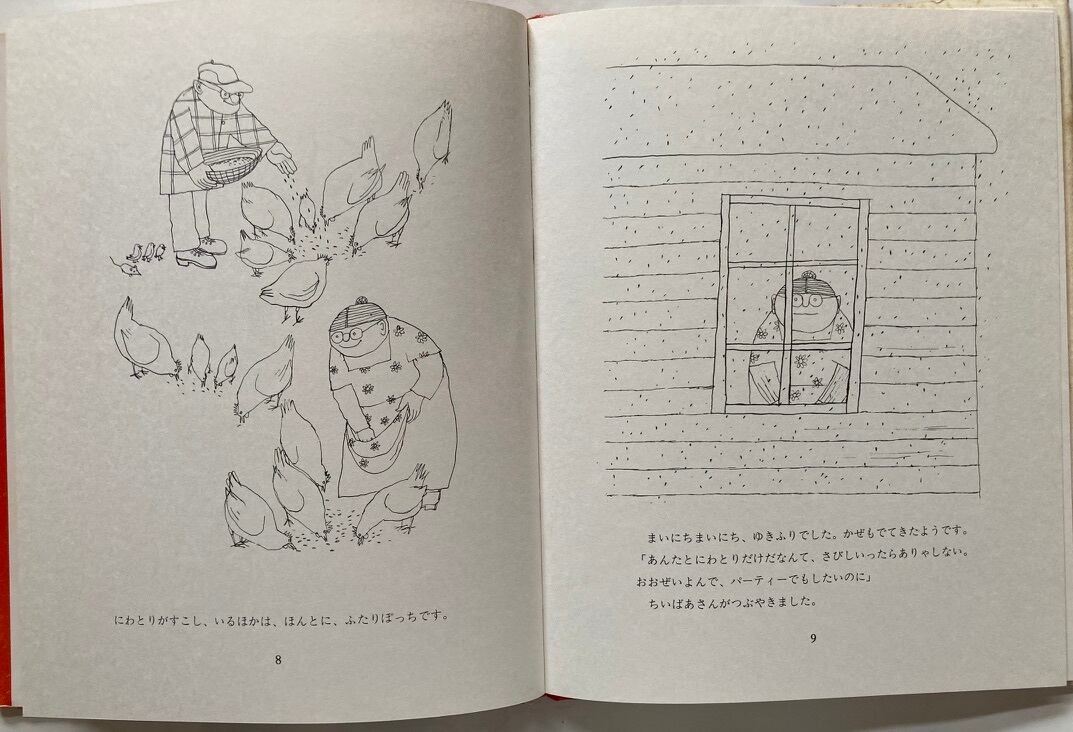 にわとりがすこし、いるほかは、ほんとに、ふたりぼっちです。
8
まいにちまいにち、ゆきふりでした。かぜもでてきたようです。
「あんたとにわとりだけだなんて、さびしいったらありゃしない。
おおぜいよんで、パーティーでもしたいのに」
ちいばあさんがつぶやきました。
9